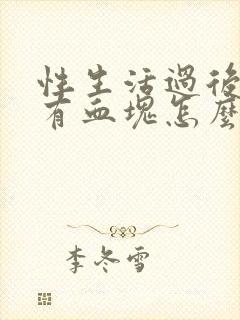 性生活過後
有血塊怎麼
李冬雪